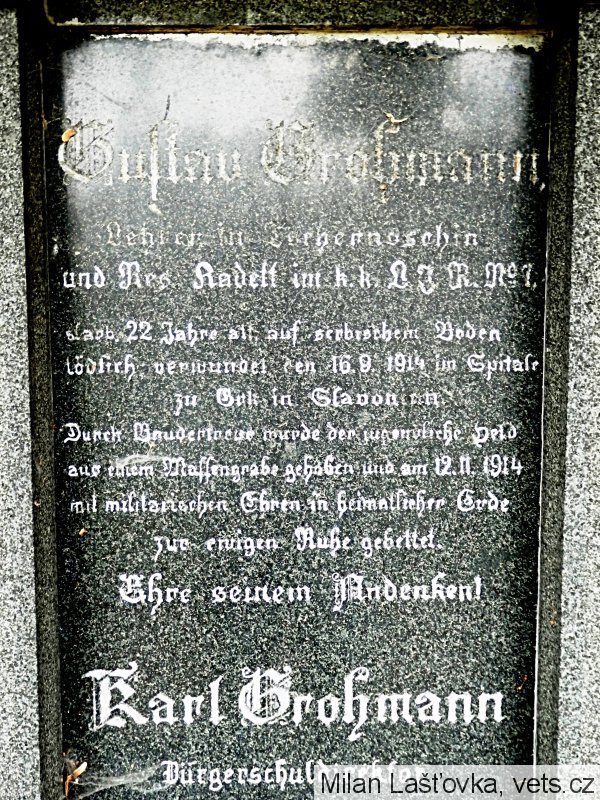 Gustav Grohmann
Lehrer in Tschernoschin
und Res. Kadett im k. k. L. J. R. No 7.
starb 22 Jahre alt auf serbischem Boden
tödlich verwundet den 16.9. 1914 im Spitale
zu Grk in Slavonien.
Durch Brudertreue wurde der jugendliche Held
aus einem Massengrabe gehoben und am 12.11. 1914
mit militärischen Ehren in heimatlicher Erde
zur ewigen Ruhe gebettet.
Ehre seinem Andenken!
Karl Grohmann
Bürgerschuldirektor
Milan Lašťovka, vets.cz